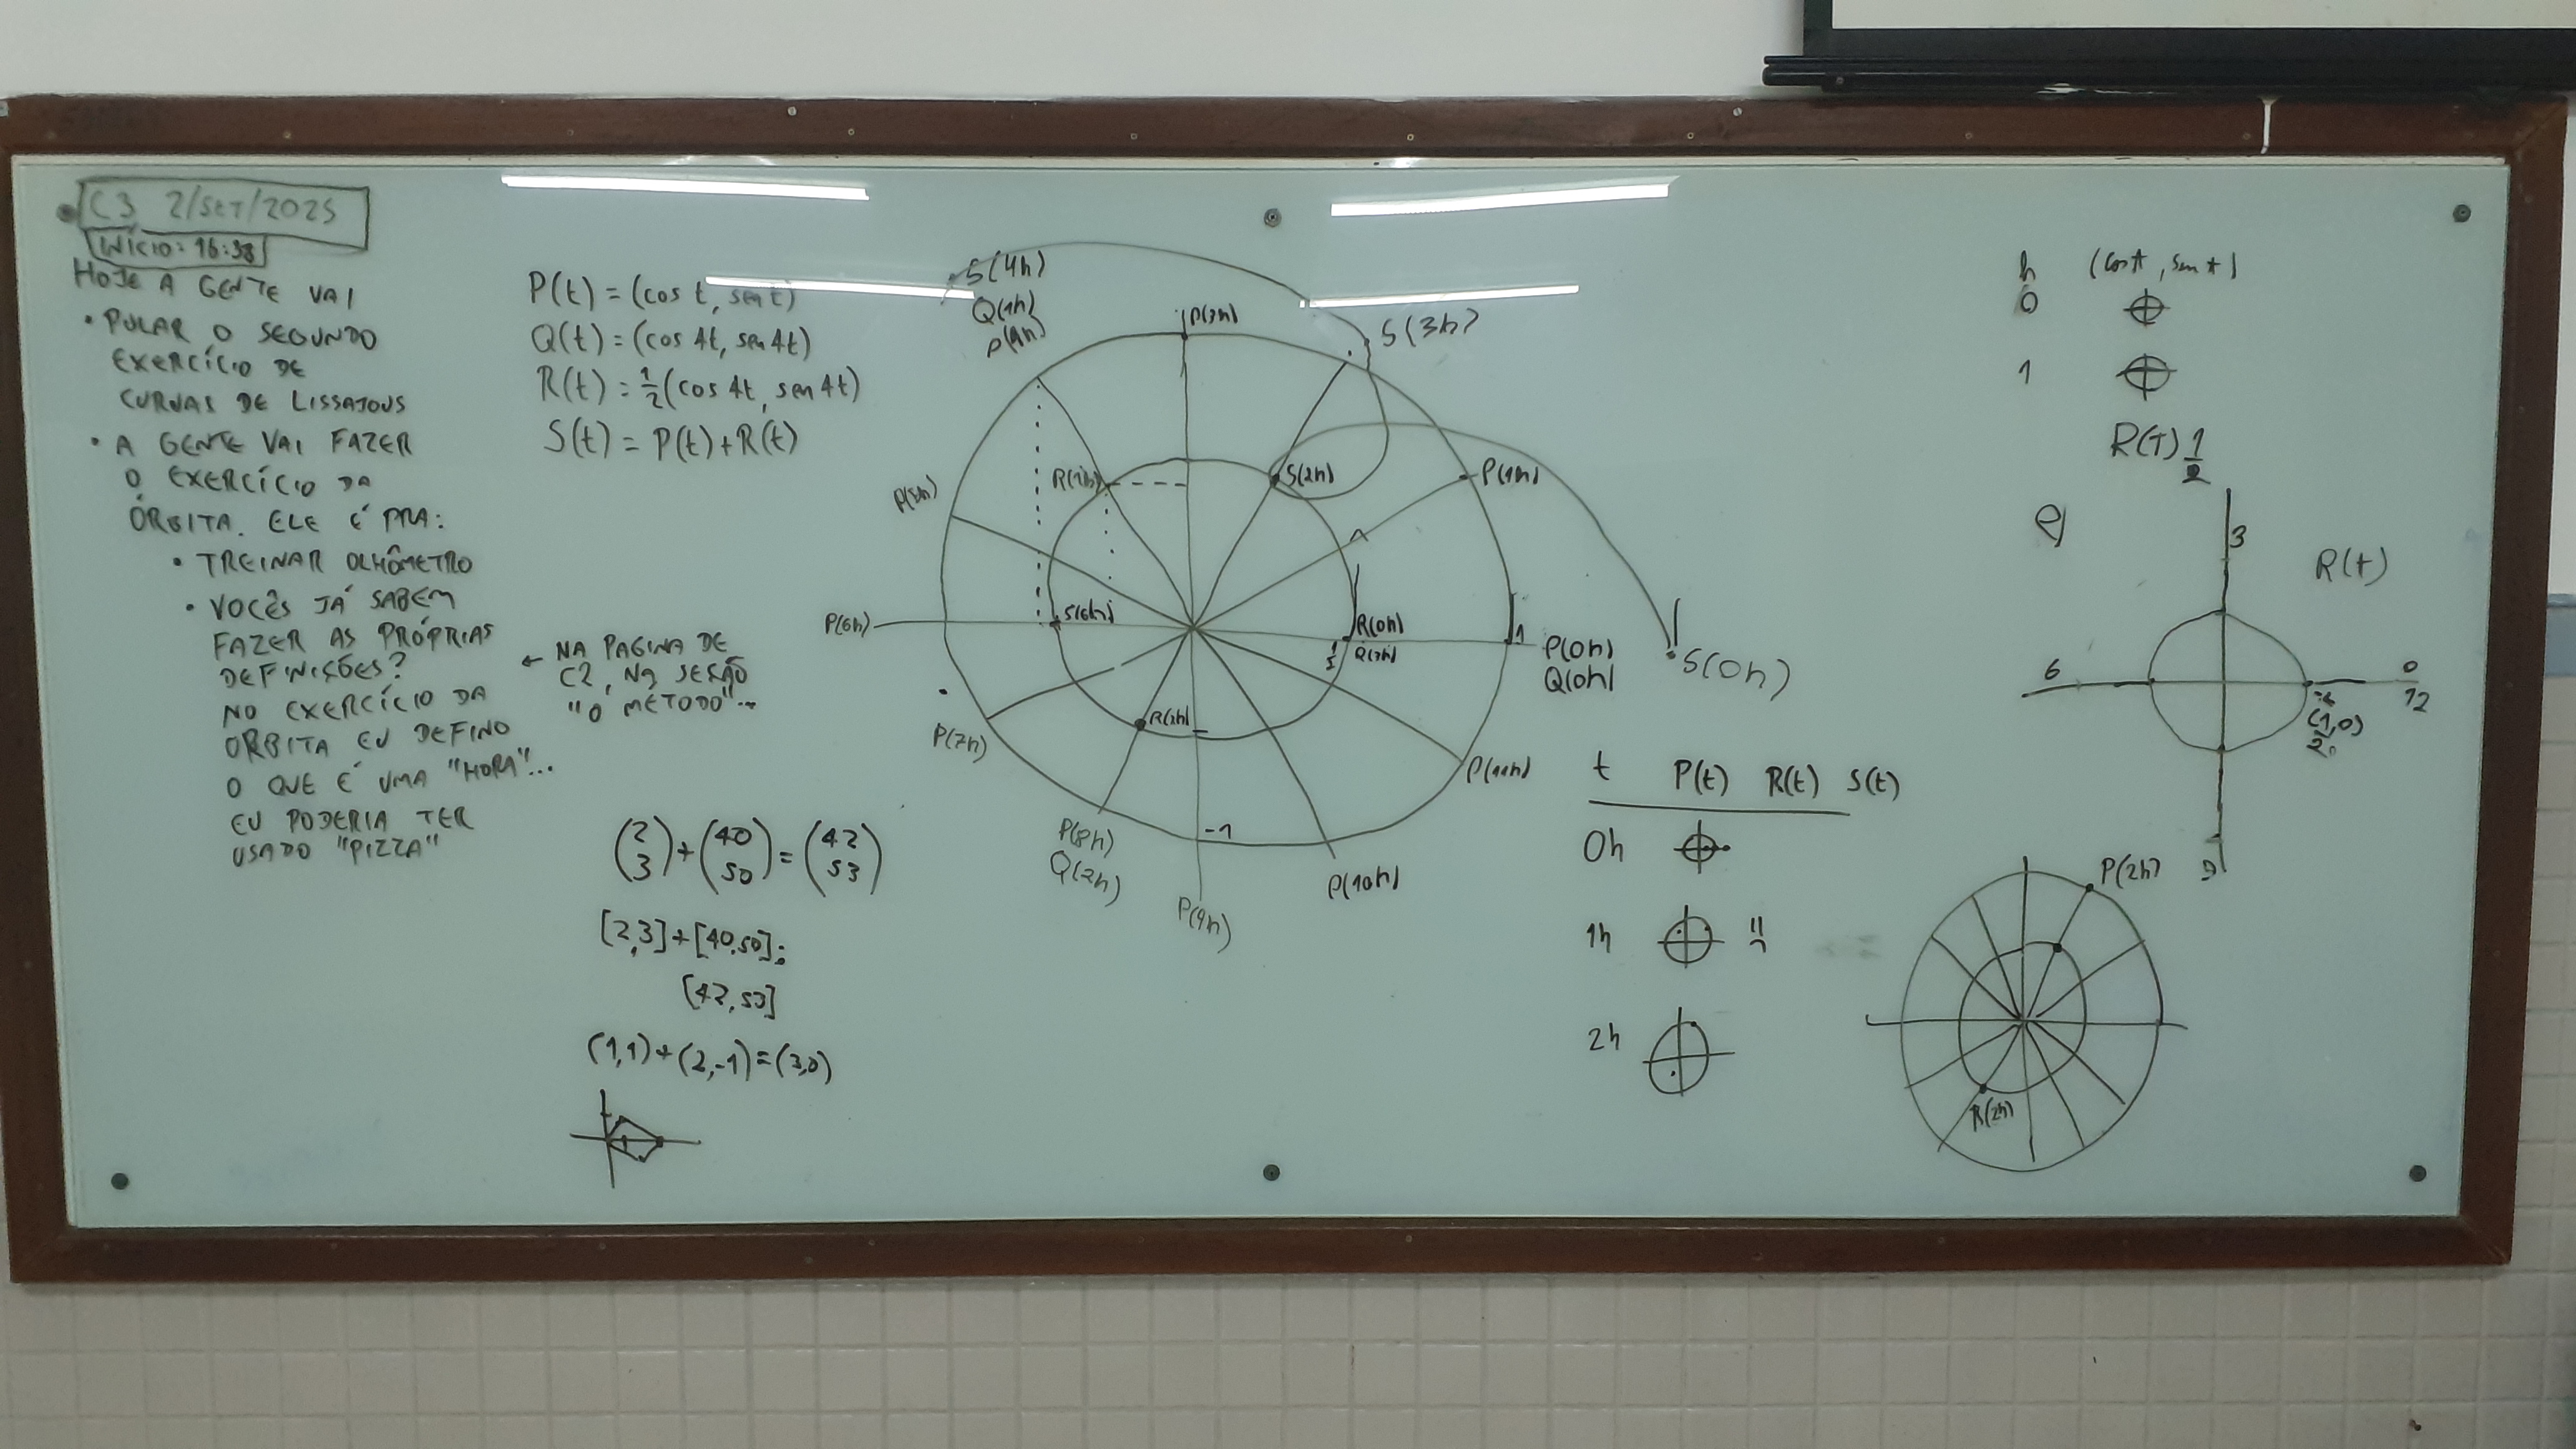 C3 2/SET/2025
INÍCIO: 16:38
HOJE A GENTE VAI
• PULAR O SEGUNDO
EXERCÍCIO DE
CURVAS DE LISSAJOUS
• A GENTE VAI FAZER
O EXERCÍCIO DA
ÓRBITA. ELE É PRA:
• TREINAR OLHÔMETRO
• VOCÊS JÁ SABEM
FAZER AS PRÓPRIAS
DEFINIÇÕES?
NO EXERCÍCIO DA
ORBITA EU DEFINO
O QUE É UMA "HORA"...
EU PODERIA TER
USADO "PIZZA"
← NA PAGINA DE
C2, NA SEÇÃO
"O MÉTODO"...
P(t) = (cos t, sen t)
Q(t) = (cos 4t, sen 4t)
R(t) = 1/2 (cos 4t, sen 4t)
S(t) = P(t) + R(t)
(2 3) + (40 50) = (42 53)
[2,3]+[40,50];
[42,53]
(1,1)+(2,-1)=(3,0)
S(4h)
Q(1h)
P(4h)
P(3h)
S(3h)
P(5h)
R(1h)
S(2h)
P(1h)
P(6h)
S(6h)
R(0h)
1/2
R(3h)
1
P(0h)
Q(0h)
S(0h)
P(7h)
R(2h)
P(11h)
P(8h)
Q(2h)
-1
P(9h)
P(10h)
t P(t) R(t) S(t)
0h
1h
2h
h (cos t, sen t)
0
1
R(T) 1/2
e)
3
R(t)
6
0
12
(1,0)
2
9
P(2h)
R(2h)